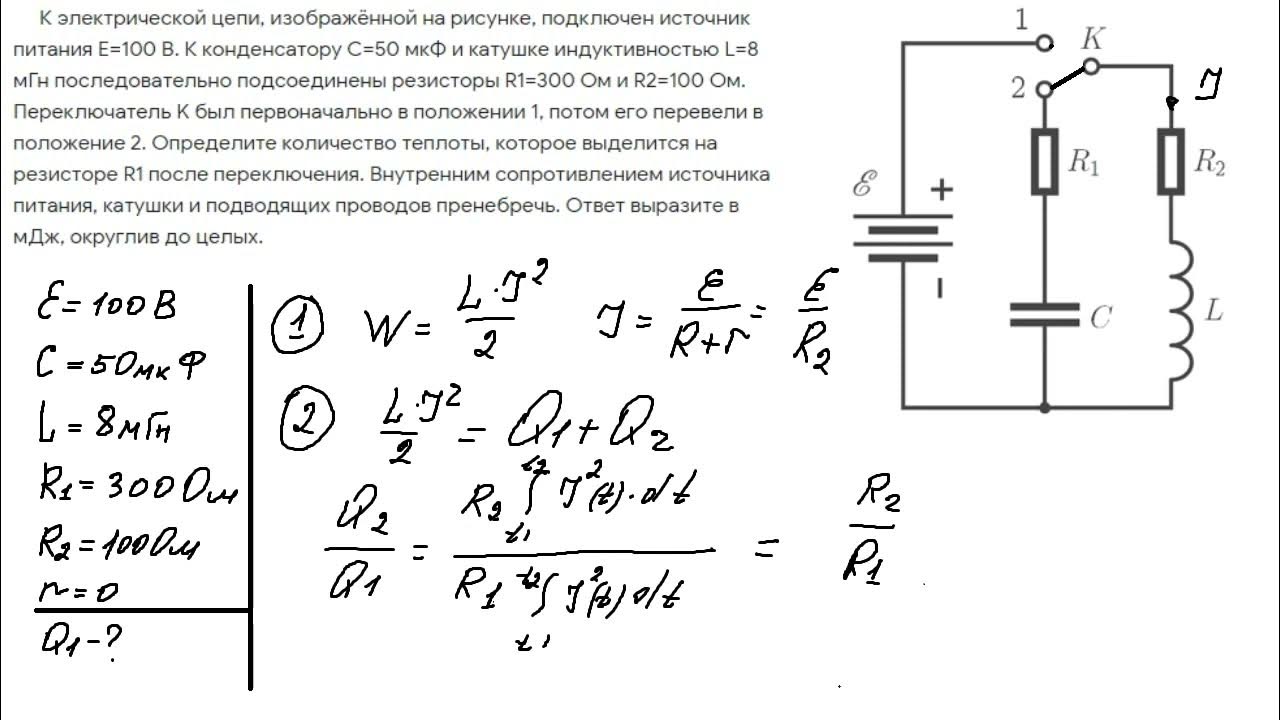 К электрической цепи, изображённой на рисунке, подключен источник
питания Е=100 В. К конденсатору С=50 мкФ и катушке индуктивностью L=8
мГн последовательно подсоединены резисторы R1=300 Ом и R2=100 Ом.
Переключатель К был первоначально в положении 1, потом его перевели в
положение 2. Определите количество теплоты, которое выделится на
резисторе R1 после переключения. Внутренним сопротивлением источника
питания, катушки и подводящих проводов пренебречь. Ответ выразите в
мДж, округлив до целых.
1
K
2
J
R₁
R₂
ℰ
+
−
C
L
ℰ = 100 В
C = 50 мкФ
L = 8 мГн
R₁ = 300 Ом
R₂ = 100 Ом
r = 0
Q₁ - ?
① W = L·J²/2 J = ℰ/(R+r) = ℰ/R₂
② L·J²/2 = Q₁ + Q₂
Q₂/Q₁ = R₂ ∫ J²(t)·dt / R₁ ∫ J²(t)dt = R₂/R₁
t₂
t₁
t₂
t₁